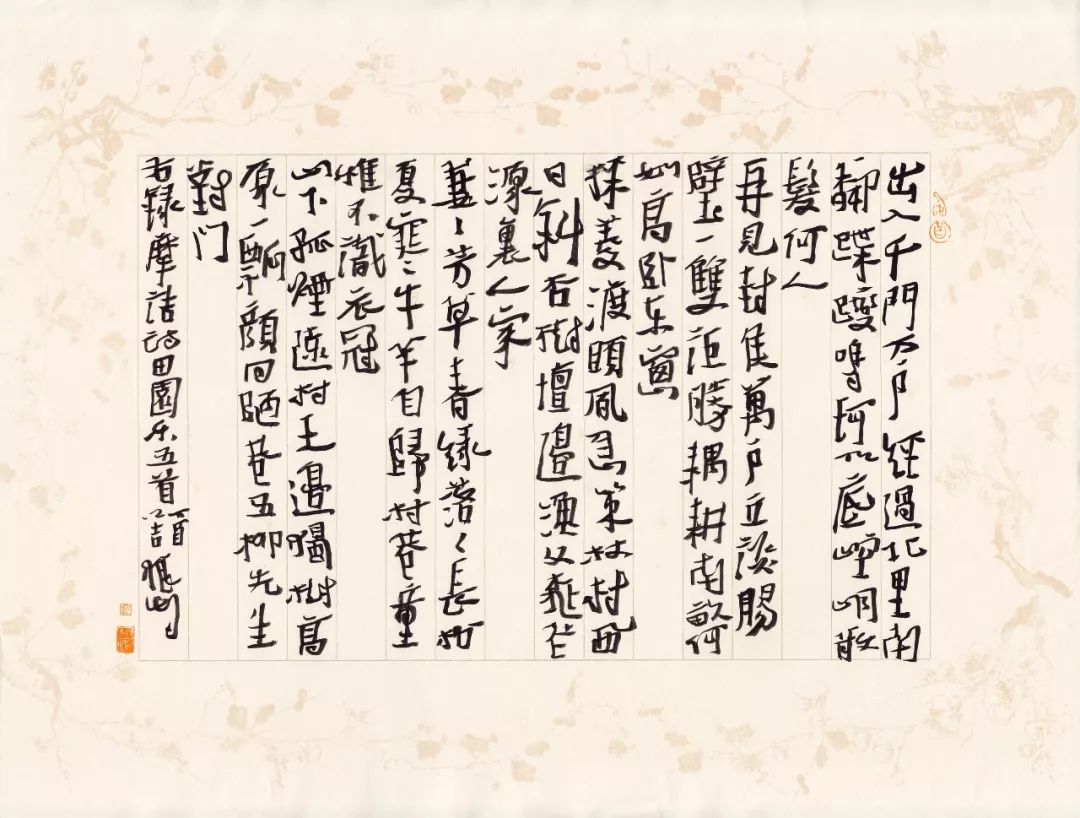 出入千門万户經過北里南
鄰蹀躞鳴珂底崆峒散
髮何人
再見封侯萬户立談賜
璧一雙詎勝耦耕南畝何
如高卧东窗
採菱渡頭風急策杖村西
日斜杏樹壇邊漁父桃花
源裏人家
萋〻芳草春绿落〻長松
夏寒牛羊自歸村巷童
稚不識衣冠
山下孤煙遠村天邊獨樹高
原一瓢顏回陋巷五柳先生
對门
右録摩詰诗田園乐五首